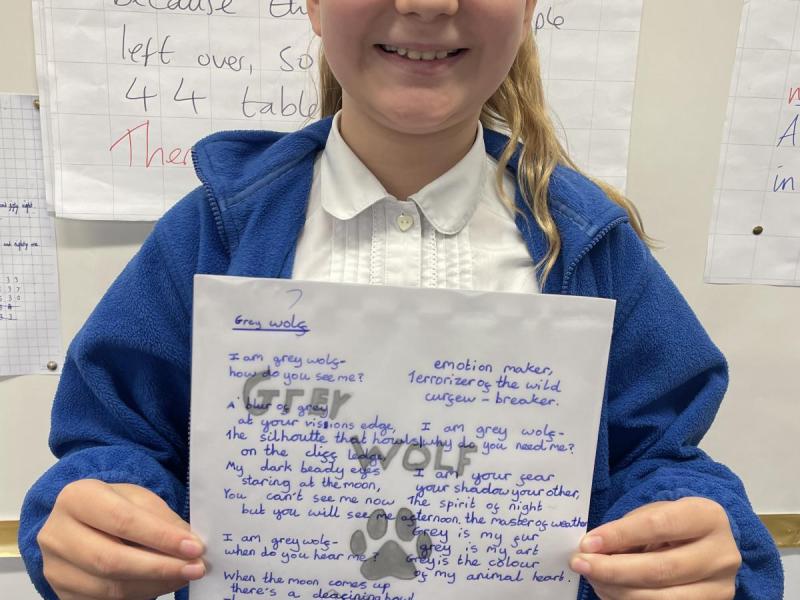 because
left over, so
44 table
Grey wolf
I am grey wolf-
how do you see me?
A blur of grey
at your vissions edge,
The silhoutte that howls
on the cliff ledge
My dark beady eyes
staring at the moon,
You can't see me now
but you will see me afternoon.
I am grey wolf-
when do you hear me?
When the moon comes up
there's a deafining howl
emotion maker,
Terrorizer of the wild
curfew - breaker.
I am grey wolf-
why do you need me?
I am your fear
your shadow your other,
The spirit of night
the master of weather
Grey is my fur
grey is my art
Grey is the colour
of my animal heart.
GREY
WOLF